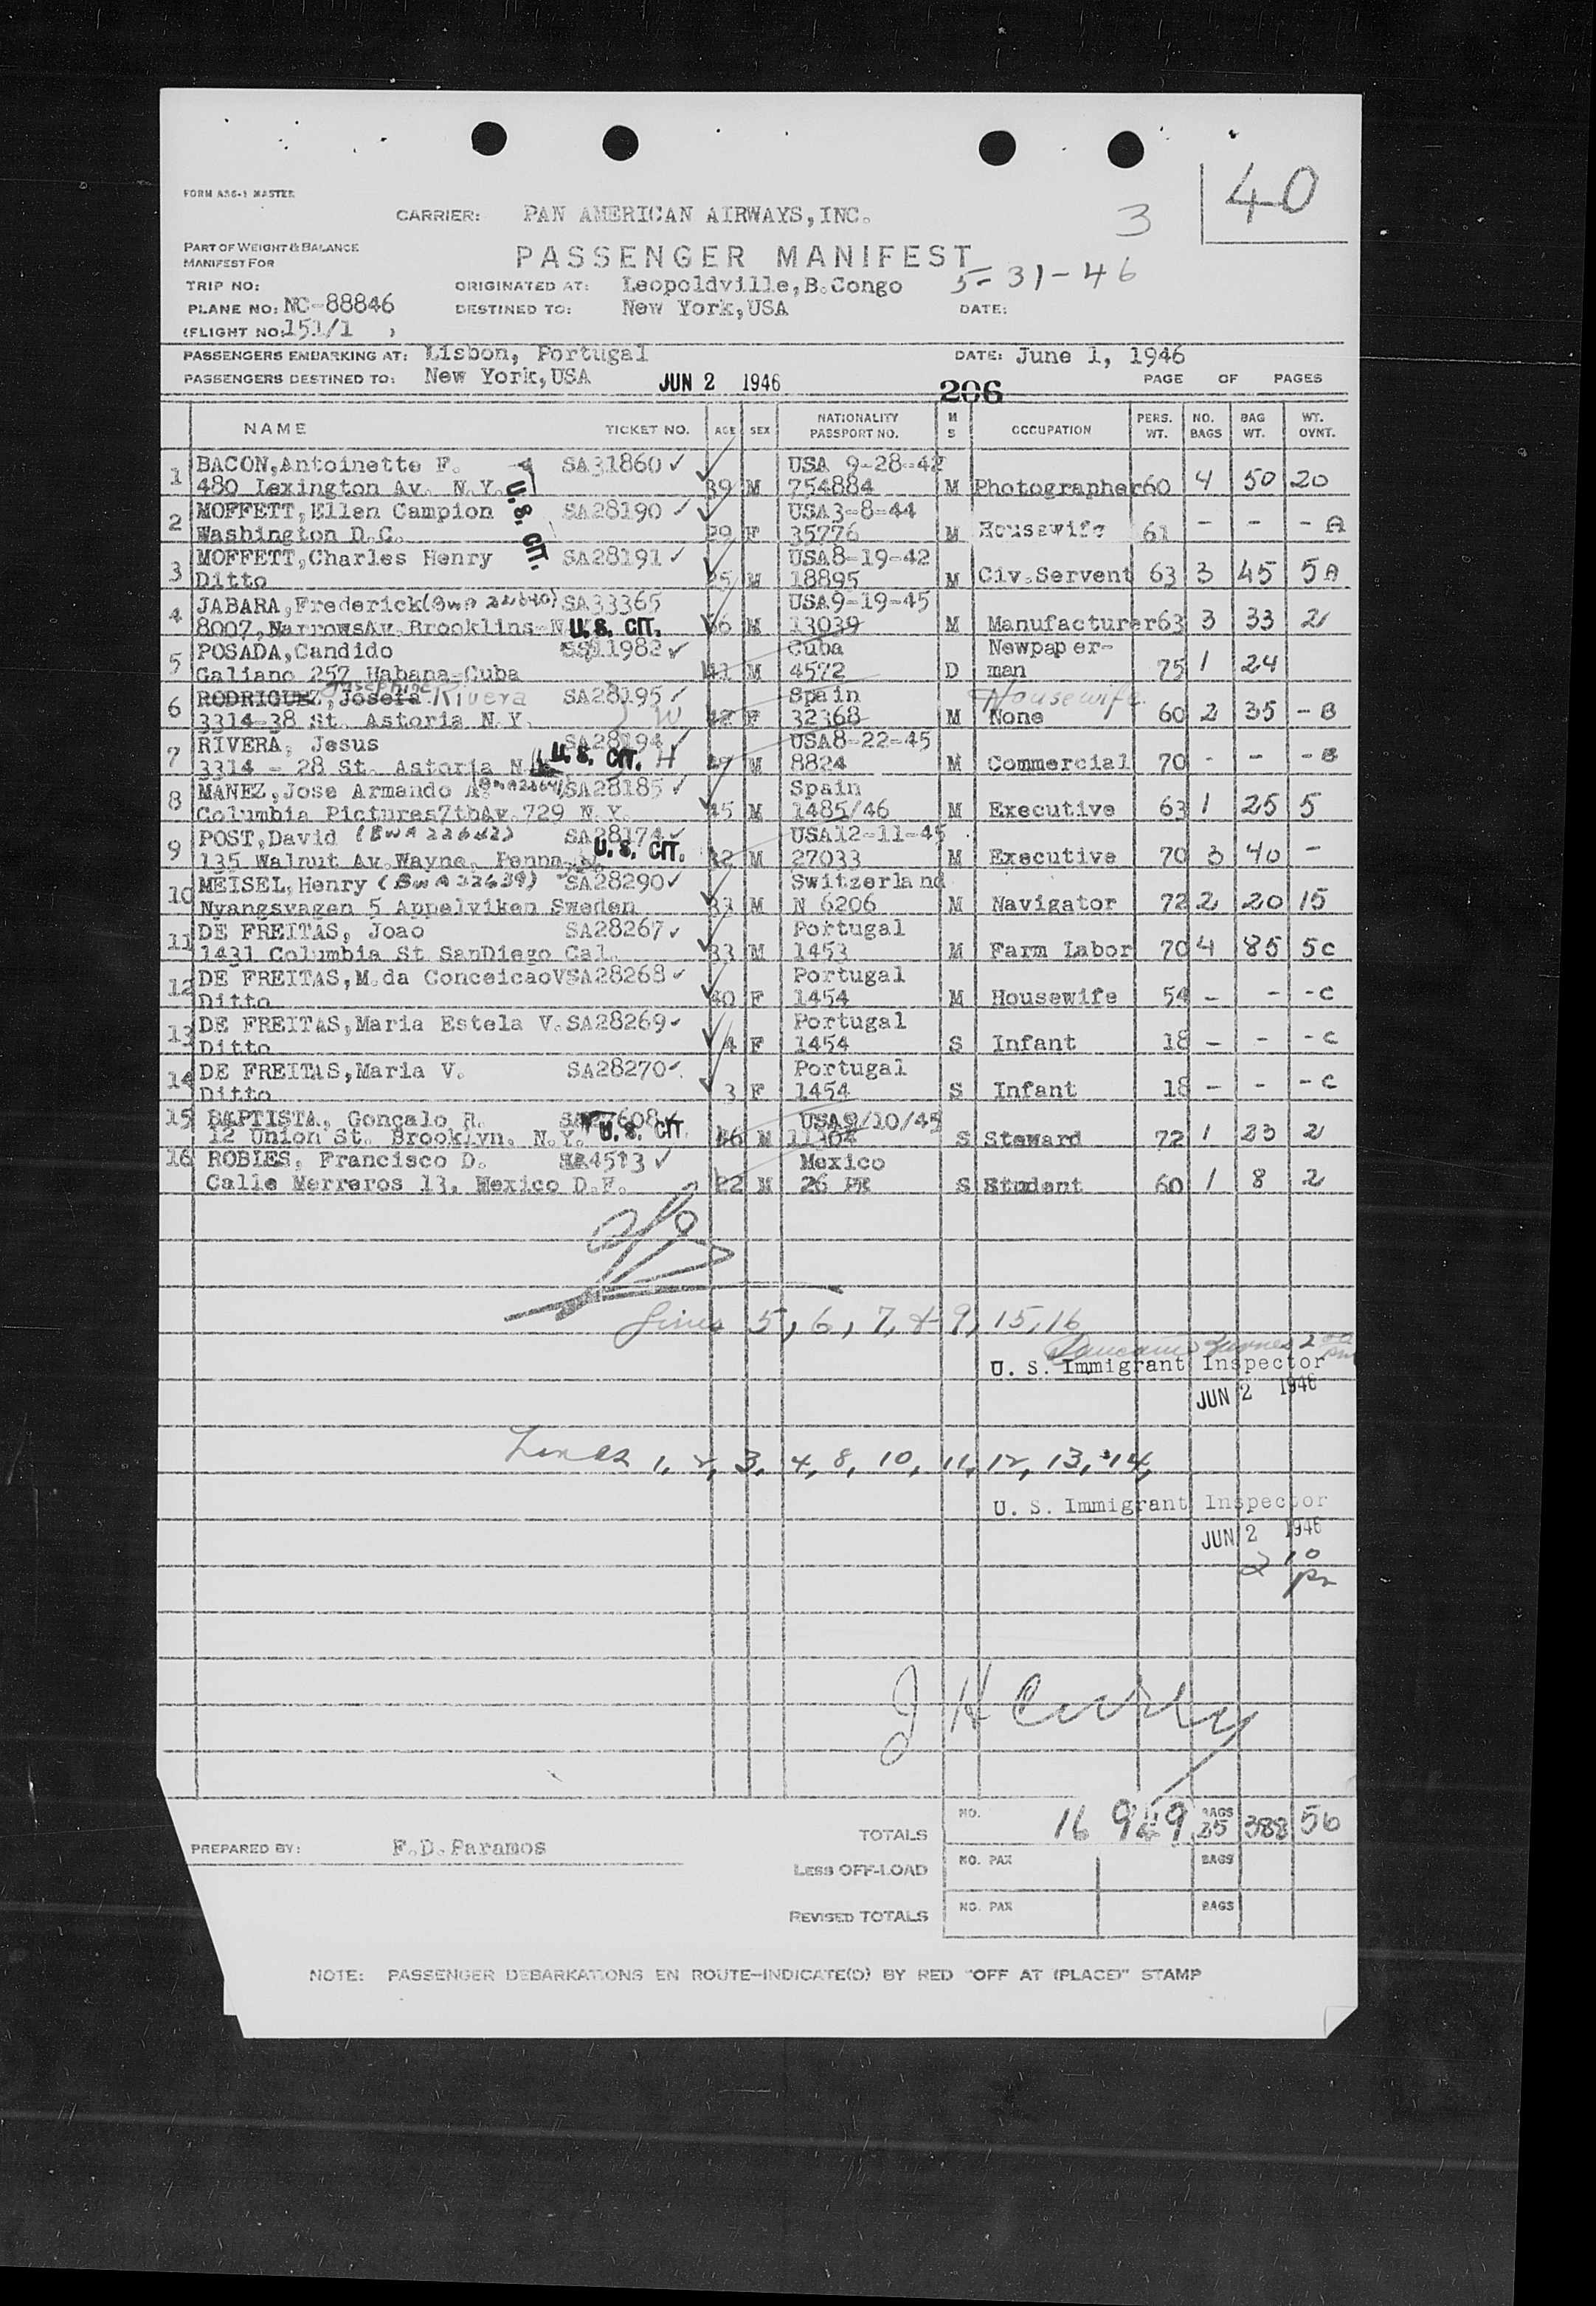 40
3
FORM AS6-1 MASTER
CARRIER: PAN AMERICAN AIRWAYS, INC.
PART OF WEIGHT & BALANCE
MANIFEST FOR
PASSENGER MANIFEST
5-31-46
TRIP NO: ORIGINATED AT: Leopoldville, B.Congo
PLANE NO: NC-88846 DESTINED TO: New York, USA DATE:
(FLIGHT NO: 151/1 )
PASSENGERS EMBARKING AT: Lisbon, Portugal DATE: June 1, 1946
PASSENGERS DESTINED TO: New York, USA JUN 2 1946 206 PAGE OF PAGES
NAME TICKET NO. AGE SEX NATIONALITY PASSPORT NO. M S OCCUPATION PERS. WT. NO. BAGS BAG WT. WT. OVNT.
1 BACON, Antoinette F. SA31860 ✓ USA 9-28-42
480 Lexington Av. N.Y. 39 M 754884 M Photographer 60 4 50 20
U.S. CIT.
2 MOFFETT, Ellen Campion SA28190 ✓ USA3-8-44
Washington D.C. 29 F 35776 M Housewife 61 - - - A
3 MOFFETT, Charles Henry SA28191 ✓ USA8-19-42
Ditto 25 M 18895 M Civ.Servent 63 3 45 5 A
4 JABARA, Frederick (BWA 22640) SA33365 USA9-19-45
8007, NarrowsAv. Brooklins-N U.S. CIT. 56 M 13039 M Manufacturer 63 3 33 2
5 POSADA, Candido 11982 ✓ Cuba Newpaper-
Galiano 257 Habana-Cuba 41 M 4572 D man 75 1 24
6 RODRIGUEZ, Josefa Josephine Rivera SA28195 ✓ Spain Housewife
3314-38 St. Astoria N.Y. W F 32368 M None 60 2 35 - B
7 RIVERA, Jesus SA28194 ✓ USA8-22-45
3314 - 28 St. Astoria N U.S. CIT. H M 8824 M Commercial 70 - - - B
8 MANEZ, Jose Armando A. SA28185 ✓ Spain
Columbia Pictures7thAv. 729 N.Y. 45 M 1485/46 M Executive 63 1 25 5
9 POST, David (BWA 22642) SA28174 ✓ USA12-11-45
135 Walnut Av. Wayne. Penna U.S. CIT. 32 M 27033 M Executive 70 3 40 -
10 MEISEL, Henry (BWA 22639) SA28290 ✓ Switzerland
Nyangsvagen 5 Appelviken Sweden 33 M N 6206 M Navigator 72 2 20 15
11 DE FREITAS, Joao SA28267 ✓ Portugal
1431 Columbia St SanDiego Cal. 33 M 1453 M Farm Labor 70 4 85 5 C
12 DE FREITAS, M.da ConceicaoV SA28268 ✓ Portugal
Ditto 30 F 1454 M Housewife 54 - - - C
13 DE FREITAS, Maria Estela V. SA28269 ✓ Portugal
Ditto 4 F 1454 S Infant 18 - - - C
14 DE FREITAS, Maria V. SA28270 ✓ Portugal
Ditto 3 F 1454 S Infant 18 - - - C
15 BAPTISTA, Gonçalo R. ✓ USA9/10/45
12 Union St. Brooklyn. N.Y. U.S. CIT. M 11304 S Steward 72 1 23 2
16 ROBLES, Francisco D. 4513 ✓ Mexico
Calle Merreros 13, Mexico D.F. 22 M 26 S Student 60 1 8 2
Lines 5, 6, 7, & 9, 15, 16
U. S. Immigrant Inspector
JUN 2 1946
Lines 1, 2, 3, 4, 8, 10, 11, 12, 13, 14,
U. S. Immigrant Inspector
JUN 2 1946
2 10
pm
J H Curry
TOTALS NO. 16 BAGS 25 388 56
PREPARED BY: F.D.Paramos
LESS OFF-LOAD NO. PAX BAGS
REVISED TOTALS NO. PAX BAGS
NOTE: PASSENGER DEBARKATIONS EN ROUTE-INDICATE(D) BY RED "OFF AT (PLACE)" STAMP